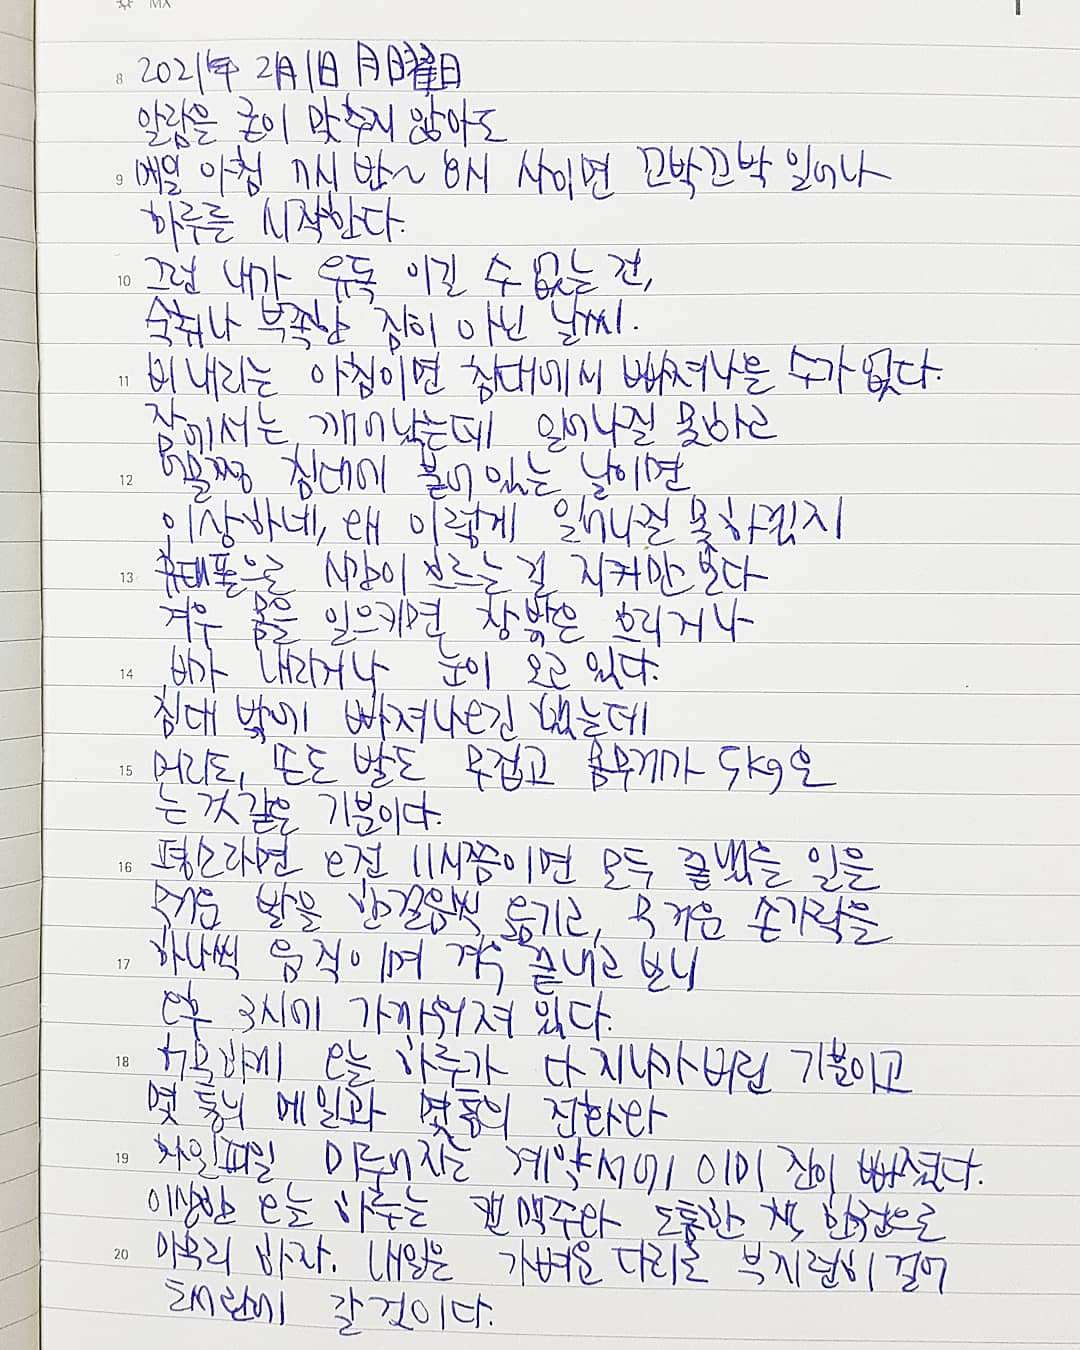 MX
8 2021年 2月 1日 月曜日
알람을 굳이 맞추지 않아도
9 매일 아침 7시 반~ 8시 사이면 꼬박꼬박 일어나
하루를 시작한다.
10 그런 내가 유독 이길 수 없는 건,
숙취나 부족한 잠이 아닌 날씨.
11 비 내리는 아침이면 침대에서 빠져나올 수가 없다.
잠에서는 깨어났는데 일어나질 못하고
12 침대에 붙어 있는 날이면
이상하네, 왜 이렇게 일어나질 못하겠지
13 휴대폰으로 시간이 흐르는 걸 지켜만 본다
겨우 몸을 일으키면 창밖은 흐리거나
14 비가 내리거나 눈이 오고 있다.
침대 밖에 빠져나오긴 했는데
15 머리도, 손도 발도 무겁고 몸무게가 5kg은
는 것 같은 기분이다.
16 평소라면 오전 11시쯤이면 모두 끝냈을 일을
발을 한걸음씩 옮기고, 무거운 손가락을
17 하나씩 움직이며 겨우 끝내고 보니
오후 3시에 가까워져 있다.
18 허무하게 오늘 하루가 다 지나가버린 기분이고
몇 통의 메일과 몇 통의 전화라
19 차일피일 미루어지는 계약서에 이미 진이 빠졌다.
이상한 오늘 하루는 캔맥주와 도톰한 책 한권으로
20 마무리 하자. 내일은 가벼운 다리로 부지런히 걸어
갈 것이다.